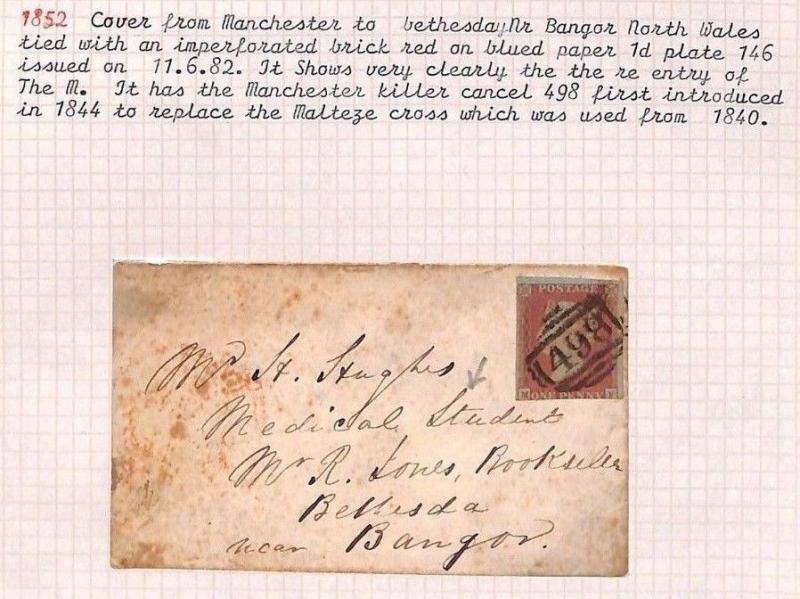 1852 Cover from Manchester to bethesda,Nr Bangor North Wales
tied with an imperforated brick red on blued paper 1d plate 146
issued on 11.6.82. It Shows very clearly the the re entry of
The M. It has the Manchester killer cancel 498 first introduced
in 1844 to replace the Malteze cross which was used from 1840.
POSTAGE
498
ONE PENNY
Mr H. Hughes
Medical Student
Mr R. Jones, Bookseller
Bethesda
near Bangor.